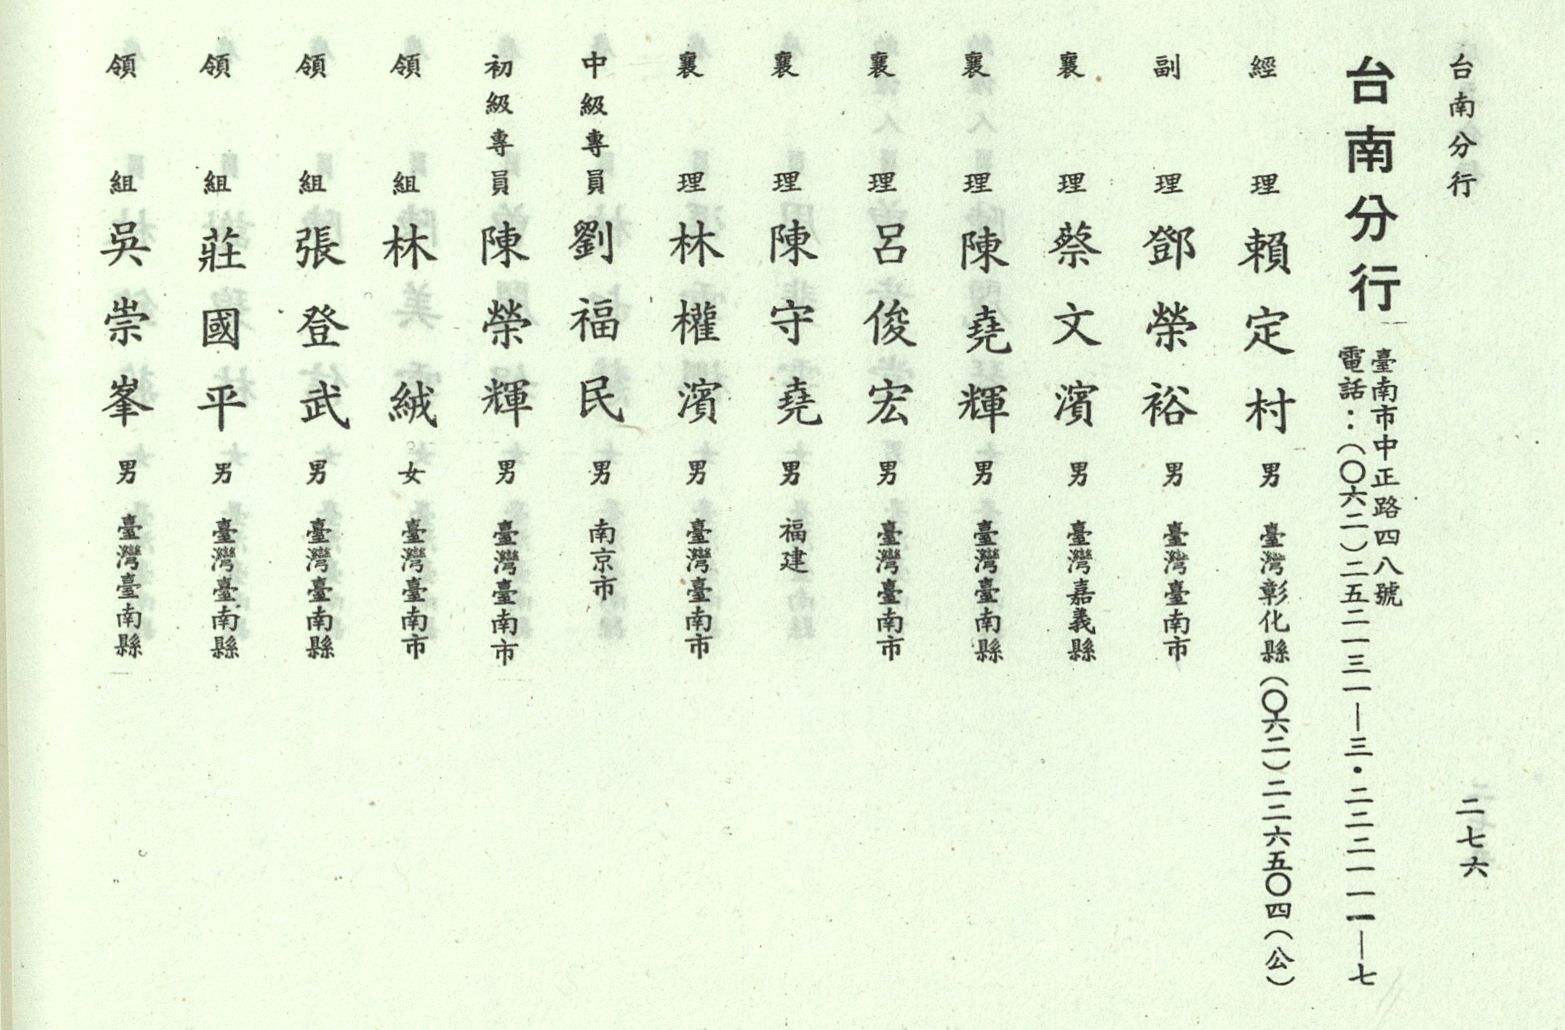 台南分行
二七六
台南分行
臺南市中正路四八號
電話：（〇六二）二五二一三一—三・二二二一一一—七
經理 賴定村 男 臺灣彰化縣（〇六二）二二六五〇四（公）
副理 鄧榮裕 男 臺灣臺南市
襄理 蔡文濱 男 臺灣嘉義縣
襄理 陳堯輝 男 臺灣臺南縣
襄理 呂俊宏 男 臺灣臺南市
襄理 陳守堯 男 福建
襄理 林權濱 男 臺灣臺南市
中級專員 劉福民 男 南京市
初級專員 陳榮輝 男 臺灣臺南市
領組 林絨 女 臺灣臺南市
領組 張登武 男 臺灣臺南縣
領組 莊國平 男 臺灣臺南縣
領組 吳崇峯 男 臺灣臺南縣